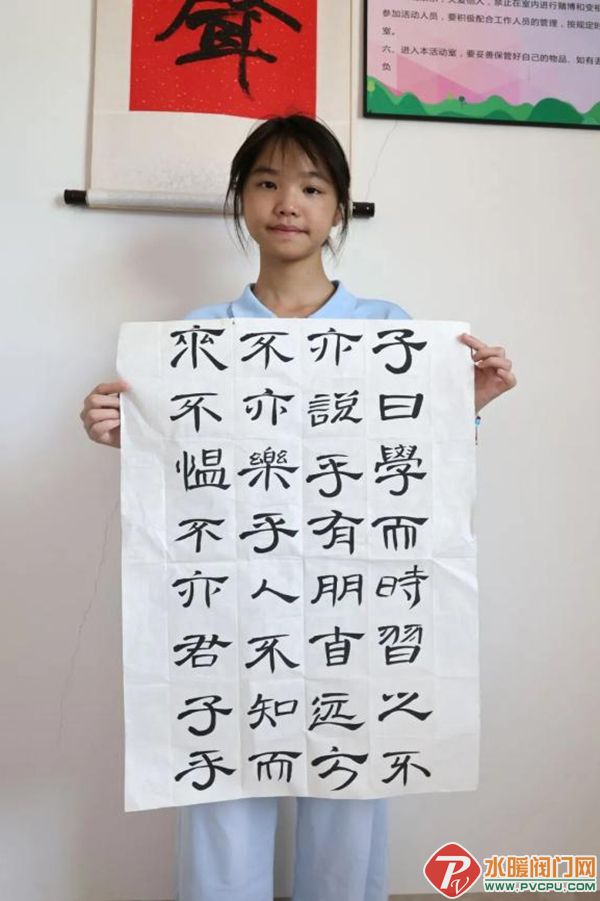 禁止在室内进行赌博和变相
参加活动人员，要积极配合工作人员的管理，按规定时
室。
六、进入本活动室，要妥善保管好自己的物品，如有丢
负
子曰學而時習之不
亦説乎有朋自远方
不亦樂乎人不知而
來不愠不亦君子乎
水暖阀门网
WWW.PVCPU.COM